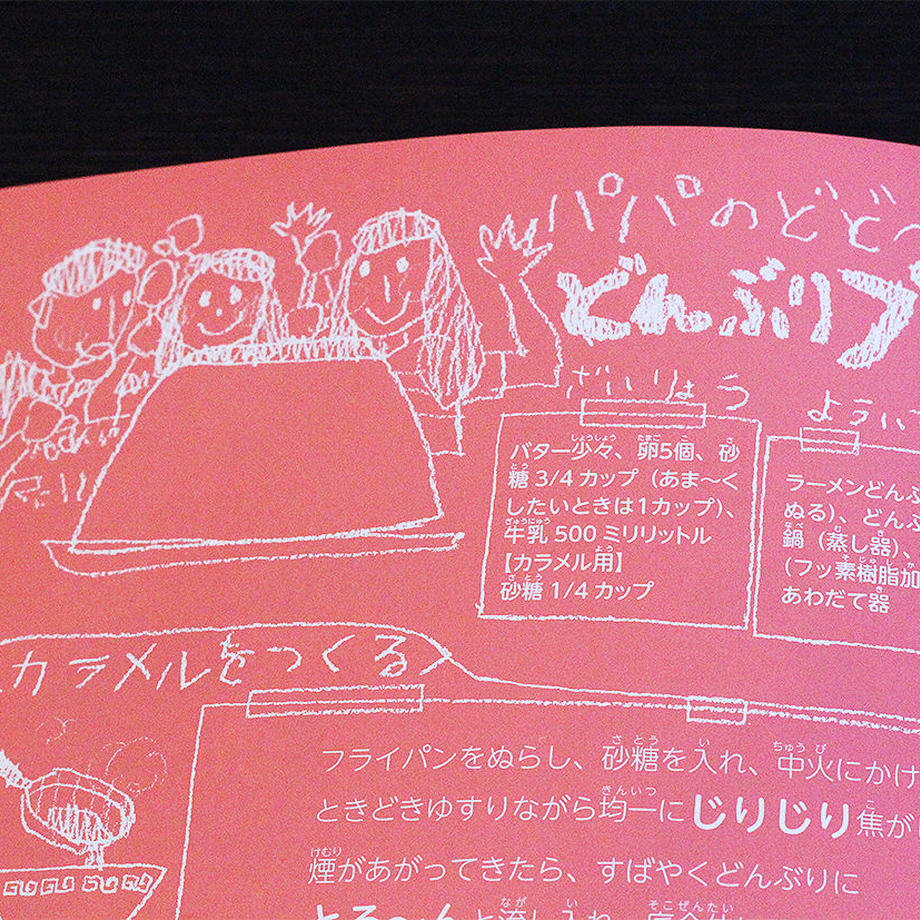 パパのどど〜
どんぶりプ
ざいりょう
バター少々、卵5個、砂
糖 3/4 カップ（あま〜く
したいときは1カップ）、
牛乳 500 ミリリットル
【カラメル用】
砂糖 1/4 カップ
ようい
ラーメンどんぶ
ぬる）、どんぶ
鍋（蒸し器）、
（フッ素樹脂加
あわだて器
カラメルをつくる
フライパンをぬらし、砂糖を入れ、中火にかけ
ときどきゆすりながら均一にじりじり焦が
煙があがってきたら、すばやくどんぶりに
とろ〜んと流し入れ、底全体